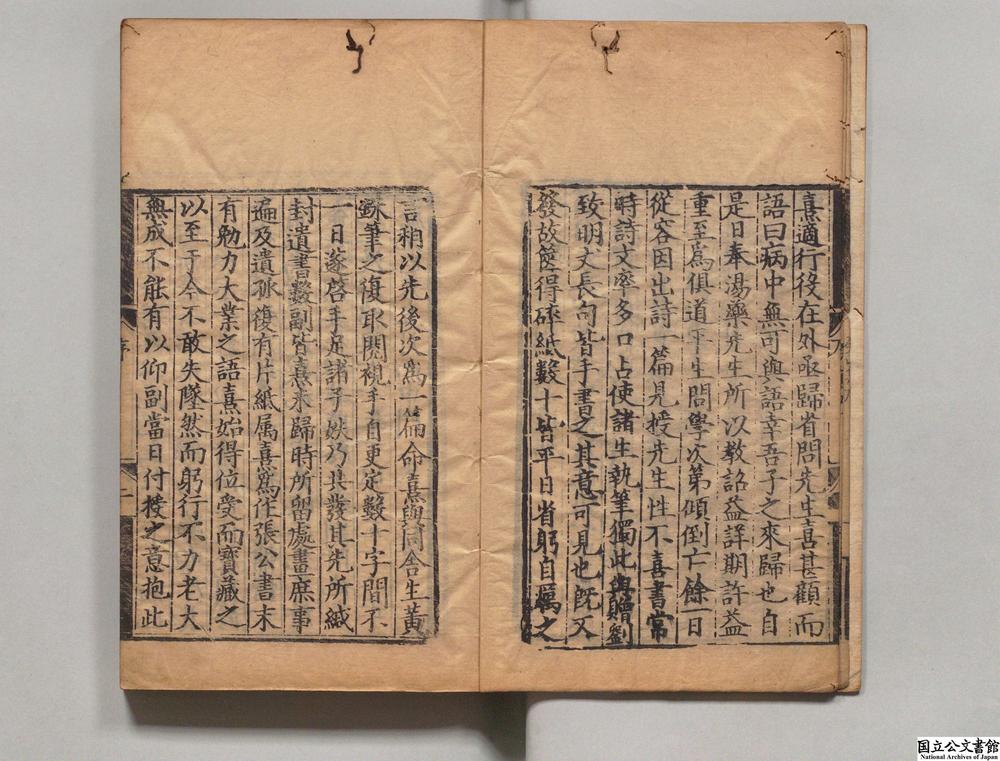 熹適行役在外亟歸省問先生喜甚顧而
語曰病中無可與語幸吾子之來歸也自
是日奉湯藥先生所以教詔益詳期許益
重至爲俱道平生問學次第傾倒亡餘一日
從容因出詩一篇見授先生性不喜書常
時詩文率多口占使諸生執筆獨此與贈劉
致明丈長句皆手書之其意可見也旣又
發故篋得碎紙數十皆平日省躬自厲之
言稍以先後次爲一篇命熹與同舍生黃
銖筆之復取閱視手自更定數十字間不
一日遂啓手足諸子姪乃共發其先所緘
封遺書數副皆熹未歸時所留處畫庶事
遍及遺孤復有片紙属熹爲作張公書末
有勉力大業之語熹始得位受而寶藏之
以至于今不敢失墜然而躬行不力老大
無成不能有以仰副當日付授之意抱此
序
二
国立公文書館
National Archives of Japan